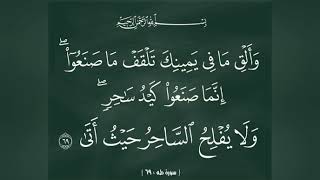 بِسْمِ ٱللَّهِ ٱلرَّحْمَٰنِ ٱلرَّحِيمِ
وَأَلْقِ مَا فِى يَمِينِكَ تَلْقَفْ مَا صَنَعُوٓا۟ ۖ
إِنَّمَا صَنَعُوا۟ كَيْدُ سَٰحِرٍ ۖ
وَلَا يُفْلِحُ ٱلسَّاحِرُ حَيْثُ أَتَىٰ ٦٩
| سورة طه : ٦٩ |